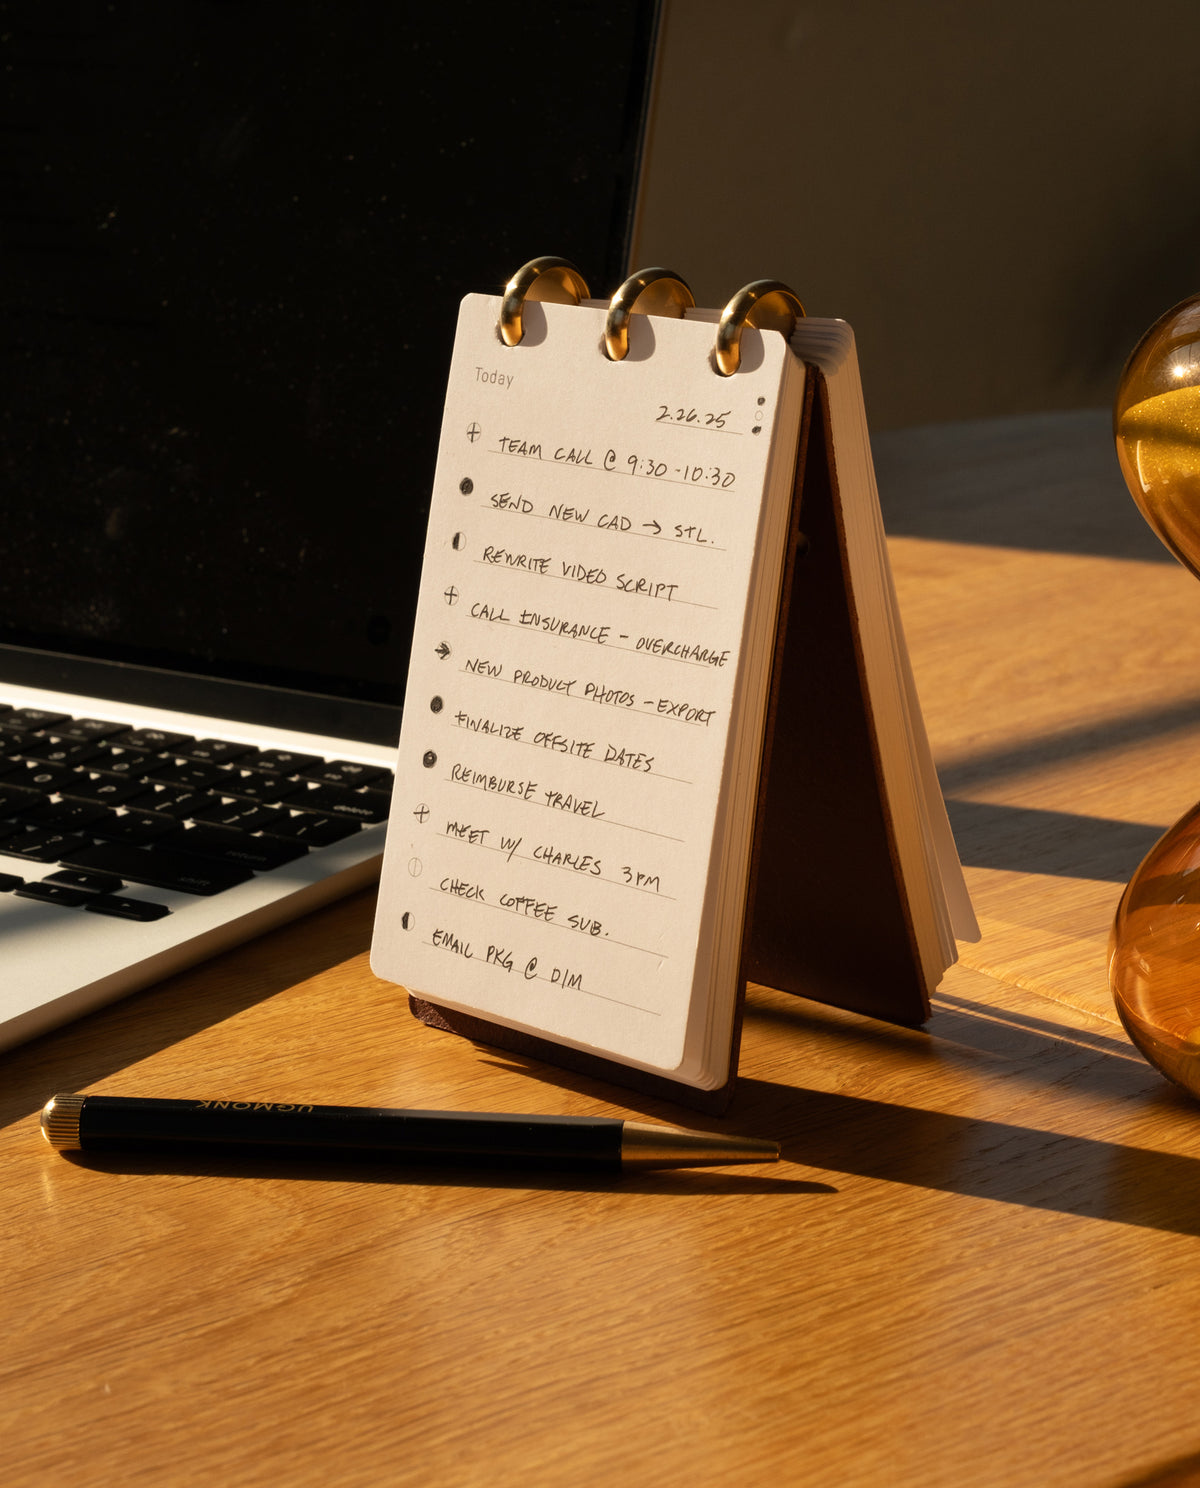 Today
2.26.25
TEAM CALL @ 9:30 -10:30
SEND NEW CAD → STL.
REWRITE VIDEO SCRIPT
CALL INSURANCE - OVERCHARGE
NEW PRODUCT PHOTOS - EXPORT
FINALIZE OFFSITE DATES
REIMBURSE TRAVEL
MEET W/ CHARLES 3PM
CHECK COFFEE SUB.
EMAIL PKG @ DIM
delete
return
shift
UGMONK